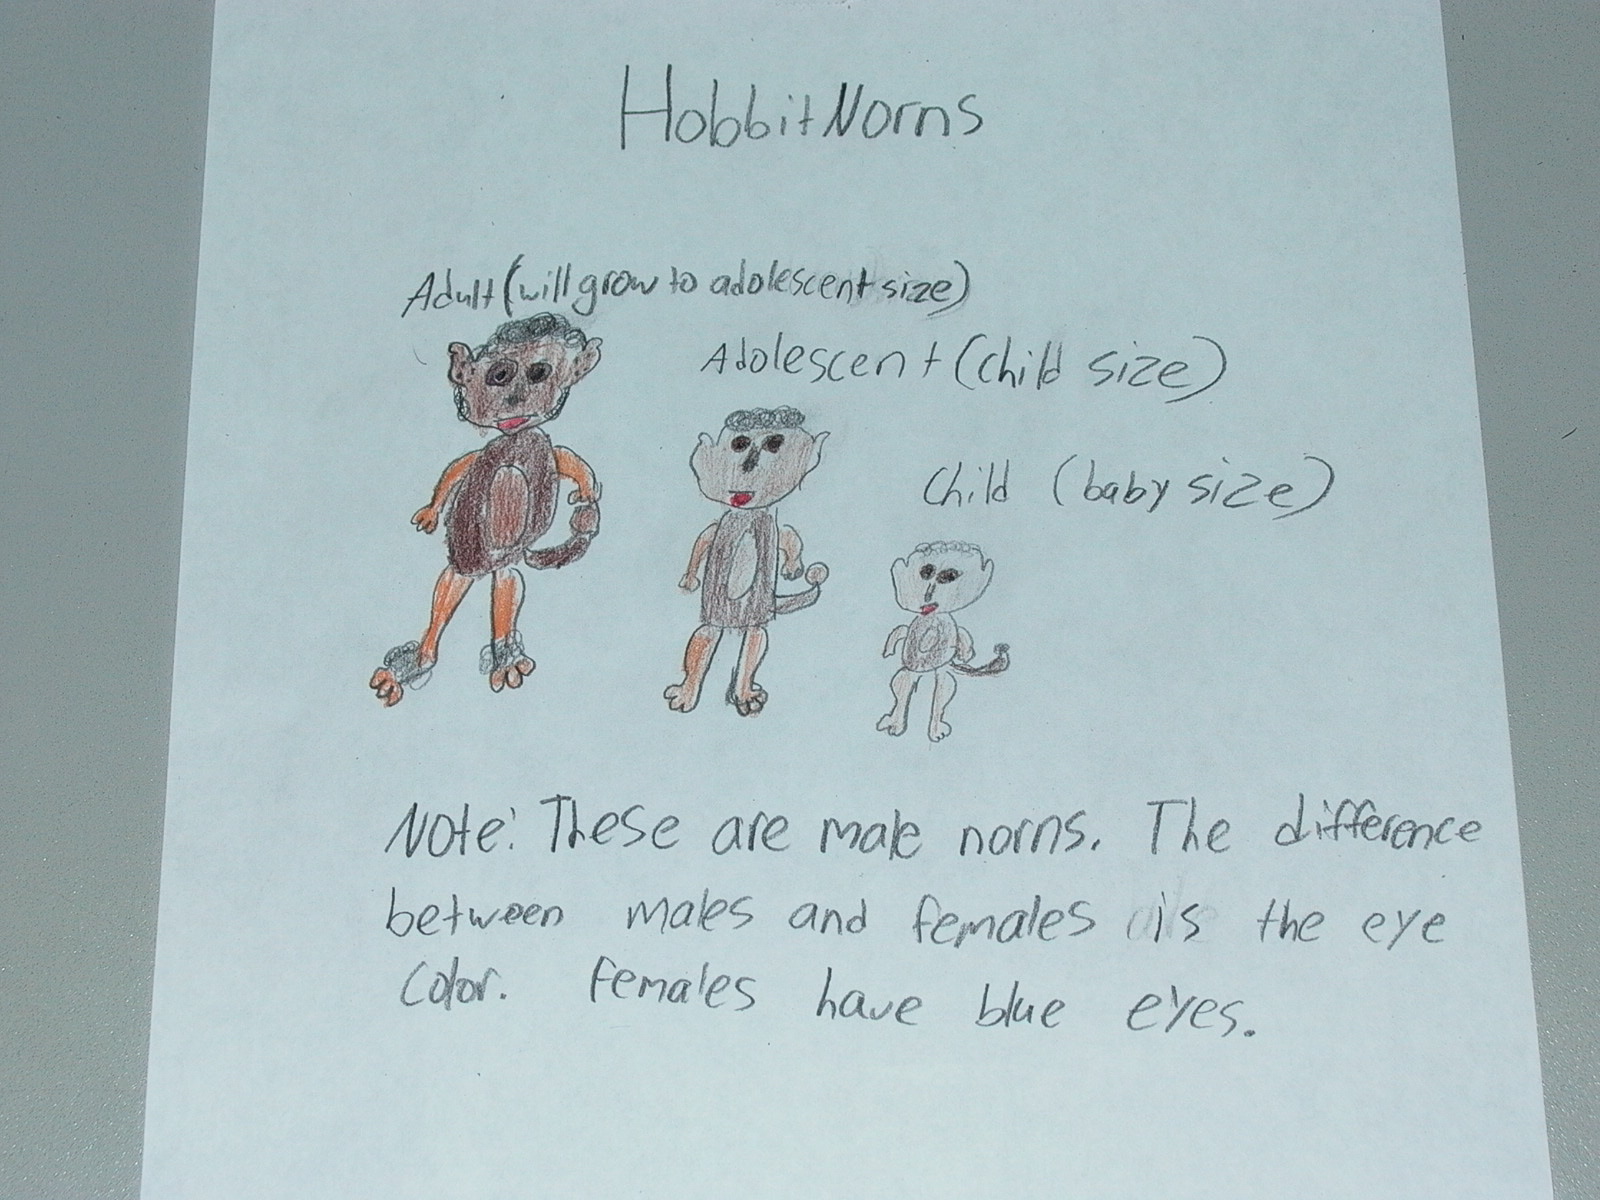 Hobbit Norns
Adult (will grow to adolescent size)
Adolescent (child size)
Child (baby size)
Note: These are male norns. The difference
between males and females is the eye
color. Females have blue eyes.